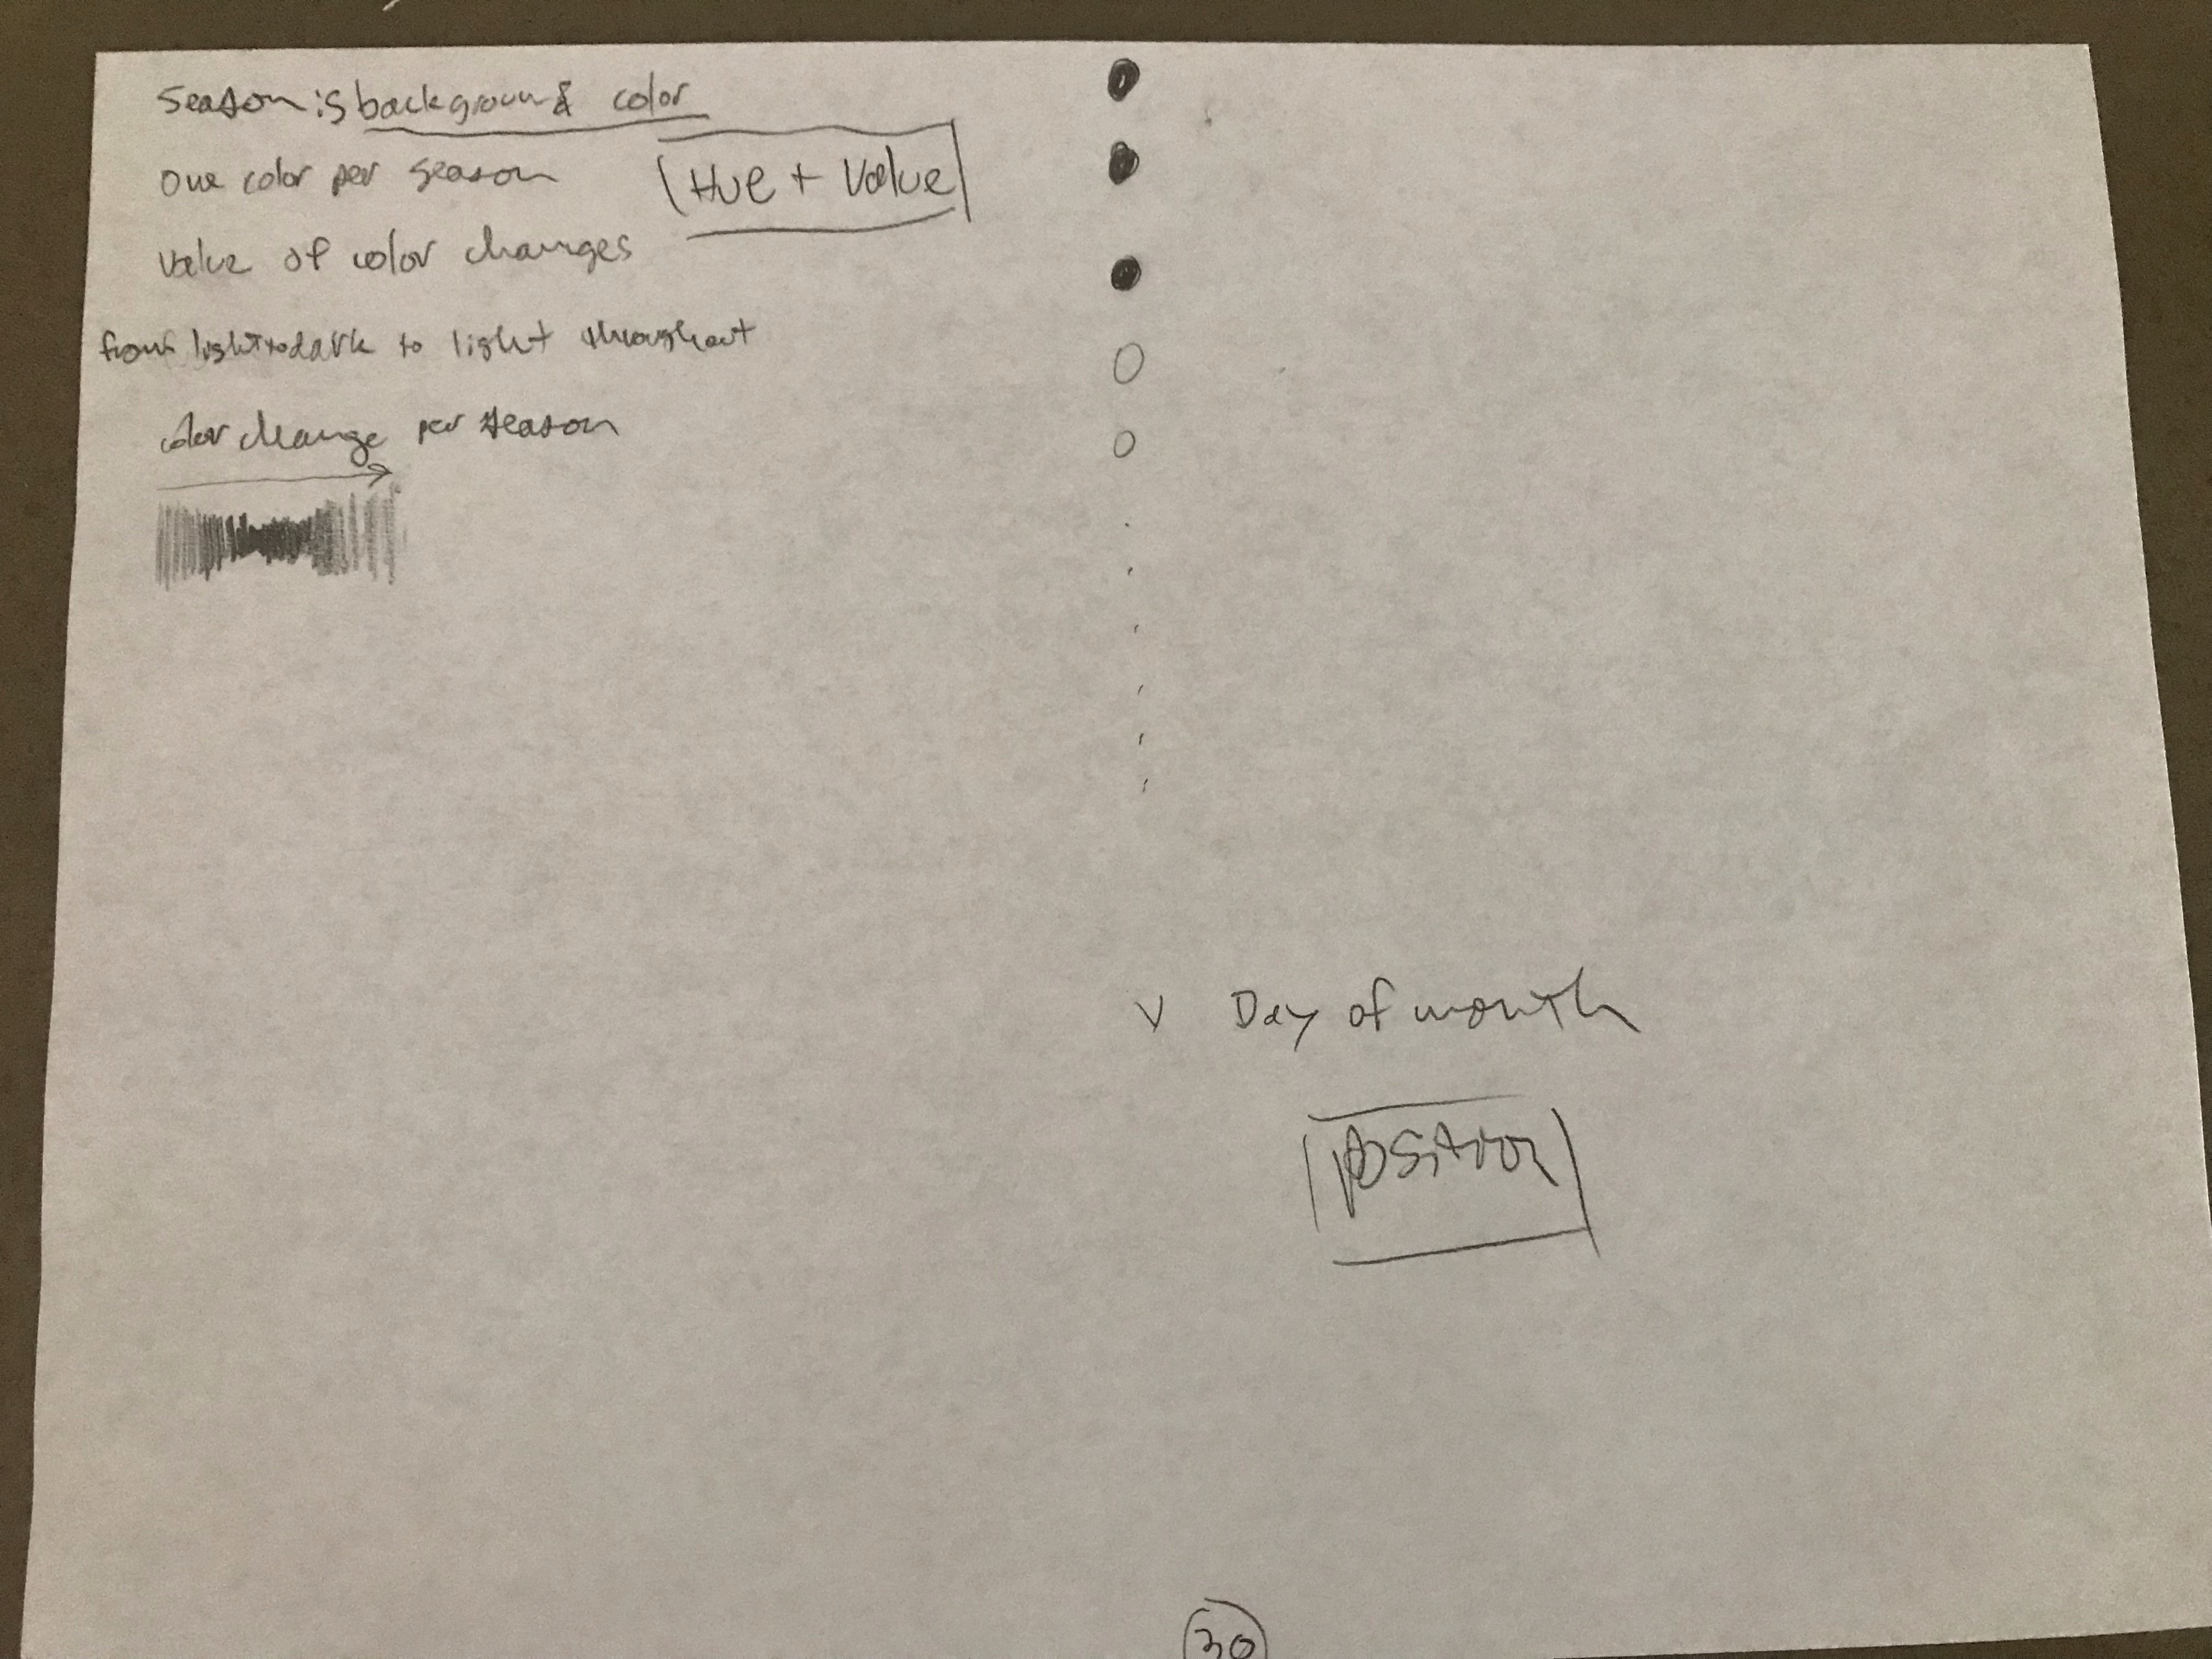 Season is background color
One color per season
Hue + Value
Value of color changes
from light to dark to light throughout
color change per season
V Day of month
position
30